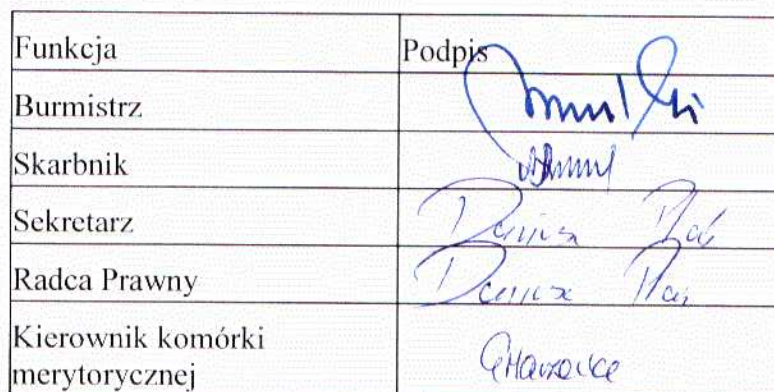 Funkcja Podpis
Burmistrz
Skarbnik
Sekretarz Dariusz
Radca Prawny Dariusz
Kierownik komórki
merytorycznej